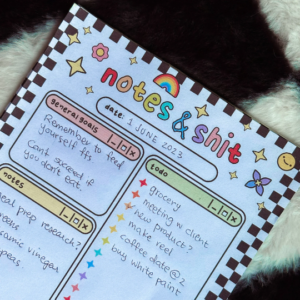 notes & shit
date: 1 JUNE 2023
general goals
Remember to feed
yourself ffs
Can't succeed if
you don't eat.
todo
grocery
meeting w client
new product?
make reel
coffee date @ 2
buy white paint
notes
meal prep research?
vinegar